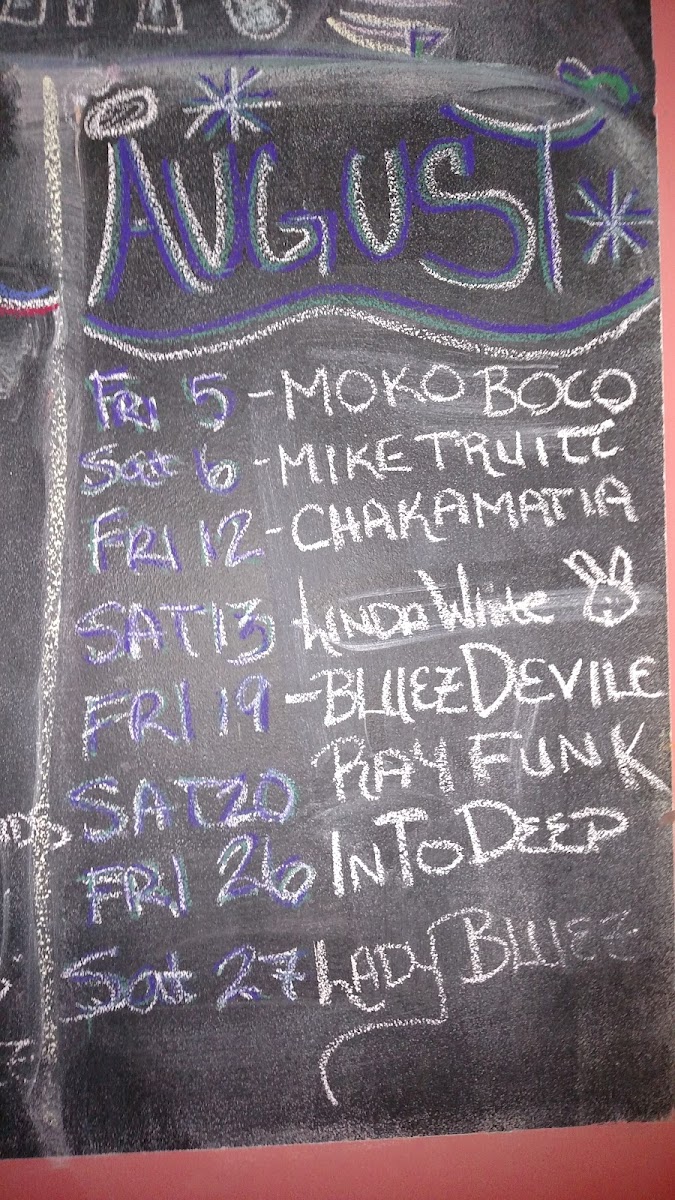 AUGUST
Fri 5 - MOKO BOCO
Sat 6 - MIKE TRUITT
FRI 12 - CHAKAMATIA
SAT 13 LINDA White
FRI 19 - BLUEZ DEVILE
SAT 20 RAY FUNK
FRI 26 IN TO DEEP
Sat 27 LADY BLUEZ